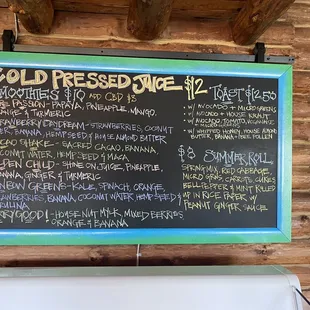 COLD PRESSED JUICE $12
SMOOTHIES $10 ADD CBD $3
PASSION - PAPAYA, PINEAPPLE, MANGO,
ORANGE & TURMERIC
STRAWBERRY DAYDREAM - STRAWBERRIES, COCONUT
WATER, BANANA, HEMP SEED & HOUSE ALMOND BUTTER
CACAO SHAKE - SACRED CACAO, BANANA,
COCONUT WATER, HEMP SEED & MACA
GOLDEN CHILD - SHINE ON JUICE, PINEAPPLE,
BANANA, GINGER & TURMERIC
RAINBOW GREENS - KALE, SPINACH, ORANGE,
STRAWBERRIES, BANANA, COCONUT WATER, HEMP SEED &
SPIRULINA
BERRY GOOD! - HOUSE NUT MYLK, MIXED BERRIES
ORANGE & BANANA
TOAST $12.50
• W/ AVOCADO + MICROGREENS
• W/ AVOCADO + HOUSE KRAUT
• W/ AVOCADO, TOMATO,
• W/ WHIPPED HONEY, HOUSE ALMOND
BUTTER, BANANA + BEE POLLEN
$8 SUMMER ROLL
SPRING MIX, RED CABBAGE,
MICRO GREENS, CARROTS, CUKES
BELL PEPPER & MINT ROLLED
UP IN RICE PAPER W/
PEANUT GINGER SAUCE